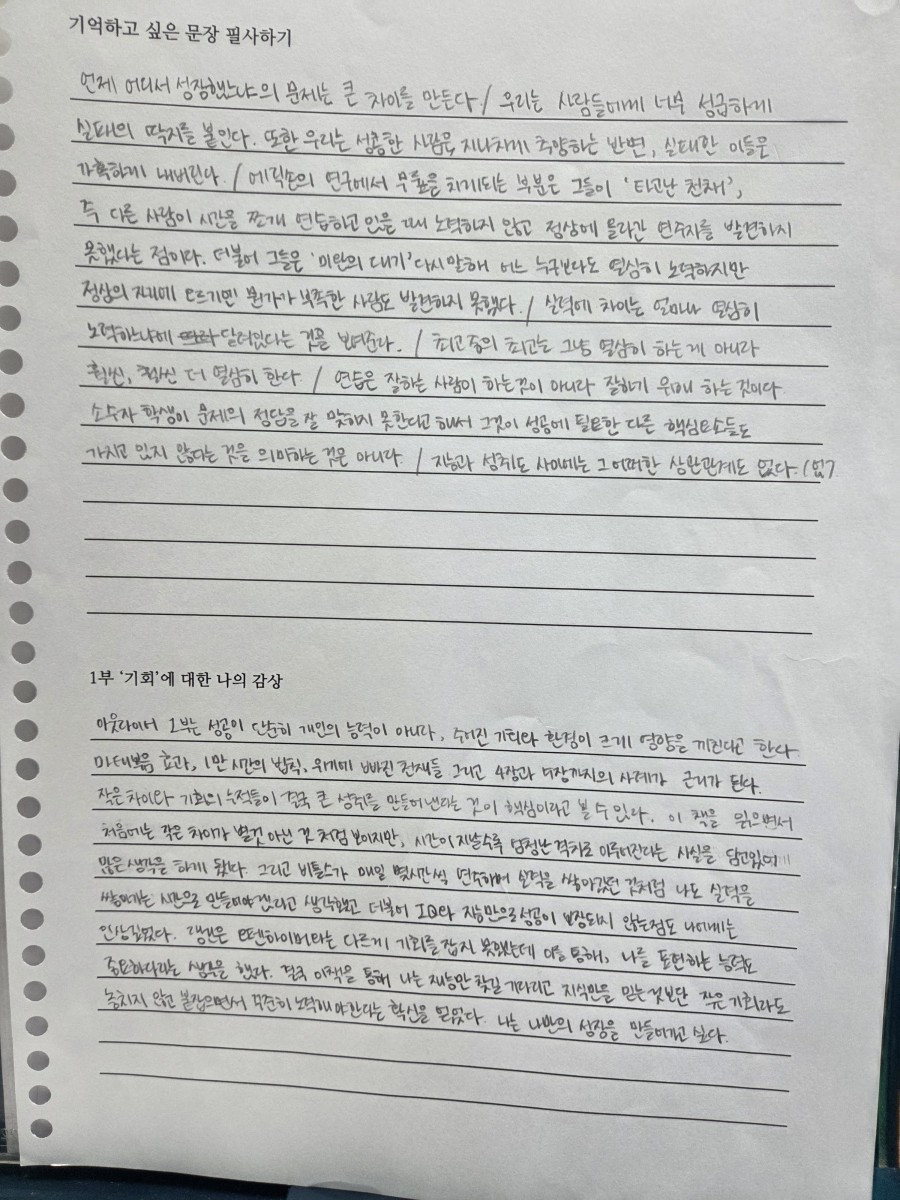 기억하고 싶은 문장 필사하기
언제 어디서 성장했느냐의 문제는 큰 차이를 만든다 / 우리는 사람들에게 너무 성급하게
실패의 딱지를 붙인다. 또한 우리는 성공한 사람을 지나치게 추앙하는 반면, 실패한 이들은
가혹하게 내버린다. / 에릭손의 연구에서 무릎을 치게되는 부분은 그들이 '타고난 천재',
즉 다른 사람이 시간을 쪼개 연습하고 있을 때 노력하지 않고 정상에 올라간 연주자를 발견하지
못했다는 점이다. 더불어 그들은 '미완의 대기' 다시말해 어느 누구보다도 열심히 노력하지만
정상의 자리에 오르기엔 뭔가가 부족한 사람도 발견하지 못했다. / 실력에 차이는 얼마나 열심히
노력하느냐에 달려있다는 것을 보여준다. / 최고 중의 최고는 그냥 열심히 하는게 아니라
훨씬, 훨씬 더 열심히 한다. / 연습은 잘하는 사람이 하는것이 아니다 잘하기 위해 하는 것이다
소수자 학생이 문제의 정답을 잘 맞히지 못한다고 해서 그것이 성공에 필요한 다른 핵심요소들도
가지고 있지 않다는 것을 의미하는 것은 아니다. / 지능과 성취도 사이에는 그 어떠한 상관관계도 없다.
1부 '기회'에 대한 나의 감상
아웃라이어 1부는 성공이 단순히 개인의 능력이 아니라, 주어진 기회와 환경이 크게 영향을 끼친다고 한다
마태복음 효과, 1만 시간의 법칙, 위기에 빠진 천재들 그리고 4장과 5장까지의 사례가 근거가 된다.
작은 차이와 기회의 누적들이 결국 큰 성취를 만들어낸다는 것이 핵심이라고 볼 수 있다. 이 책을 읽으면서
처음에는 작은 차이가 별것 아닌 것 처럼 보이지만, 시간이 지날수록 엄청난 격차로 이루어진다는 사실을 담고있어
많은 생각을 하게 됐다. 그리고 비틀스가 매일 몇시간씩 연주하며 실력을 쌓아갔던 것처럼 나도 실력을
쌓아가는 시간으로 만들어야겠다고 생각했고 더불어 IQ와 지능만으로 성공이 보장되지 않는점도 나에게는
인상깊었다. 랭건은 오펜하이머와는 다르게 기회를 잡지 못했는데 이를 통해, 나를 표현하는 능력도
중요하다라는 생각을 했다. 결국 이책을 통해 나는 재능만 찾길 기다리고 지식만을 믿는것보단 작은 기회라도
놓치지 않고 붙잡으면서 꾸준히 노력해야한다는 확신을 얻었다. 나는 나만의 성장을 만들어가고 싶다.